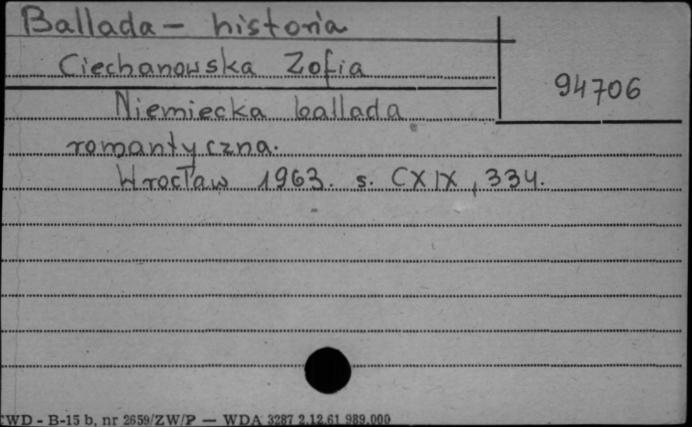 Ballada - historia
Ciechanowska Zofia
94706
Niemiecka ballada
romantyczna.
Wrocław 1963. s. CXIX, 334.
CWD - B-15 b, nr 2659/ZW/P — WDA 3287 2.12.61 989.000